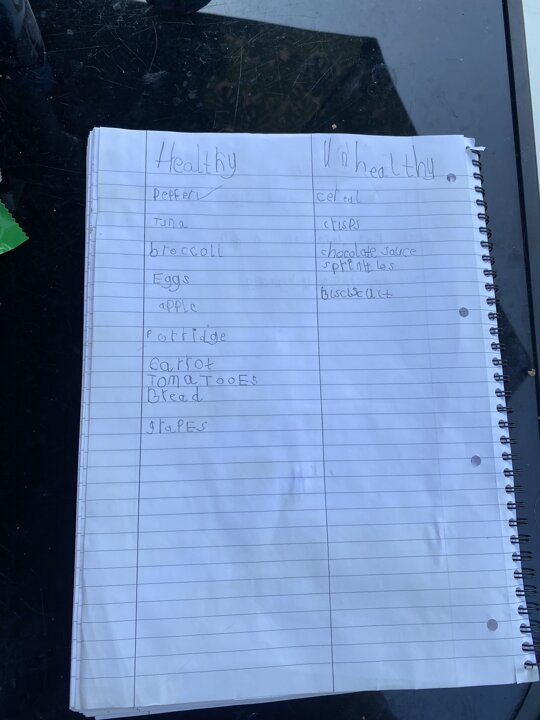 Healthy
Unhealthy
Tuna
broccoli
Eggs
apple
Porridge
Carrot
TOMATOOES
Bread
grapEs
cereal
crisps
chocolate sauce
sprinkles